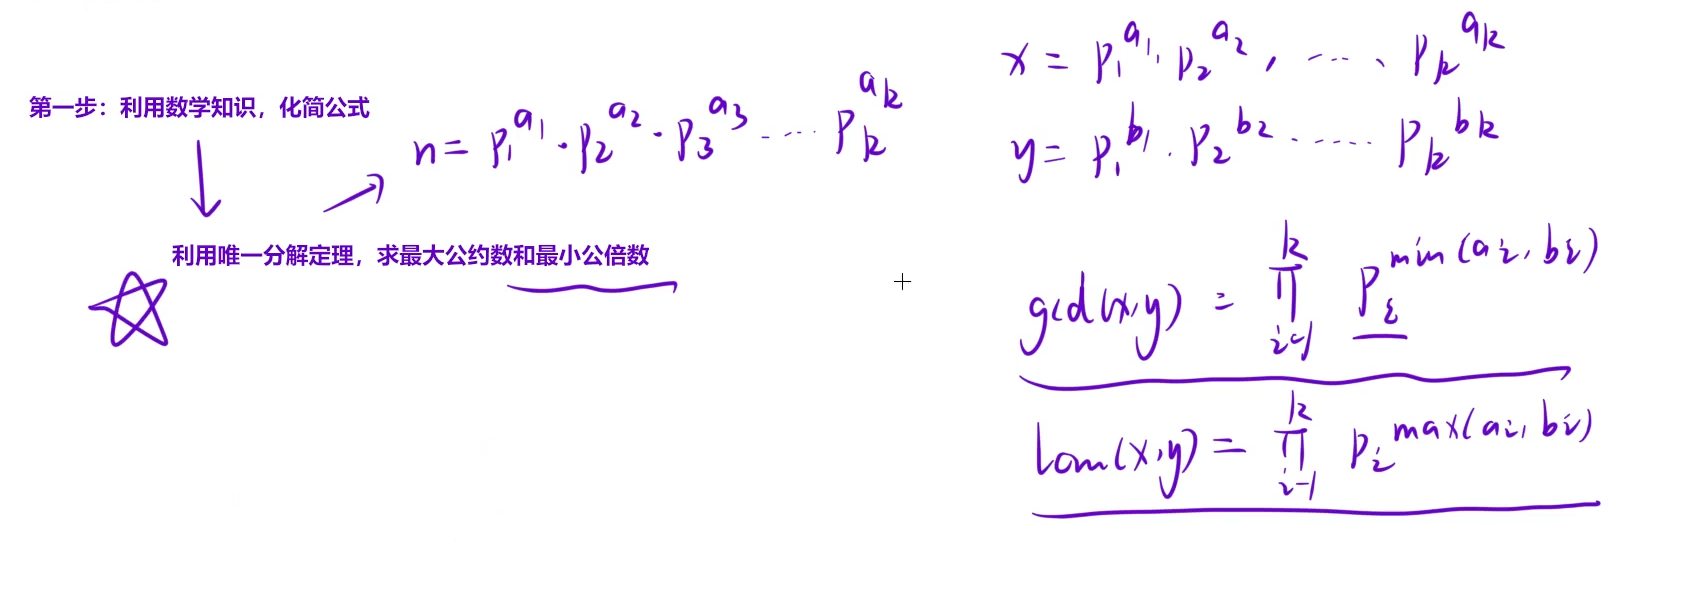 第一步：利用数学知识，化简公式
n = p₁^a₁ · p₂^a₂ · p₃^a₃ ····· p_k^a_k
利用唯一分解定理，求最大公约数和最小公倍数
x = p₁^a₁ · p₂^a₂ , ···· 、 p_k^a_k
y = p₁^b₁ · p₂^b₂ ······ p_k^b_k
gcd(x,y) = ∏_{i=1}^{k} p_i^min(a_i, b_i)
lcm(x,y) = ∏_{i=1}^{k} p_i^max(a_i, b_i)